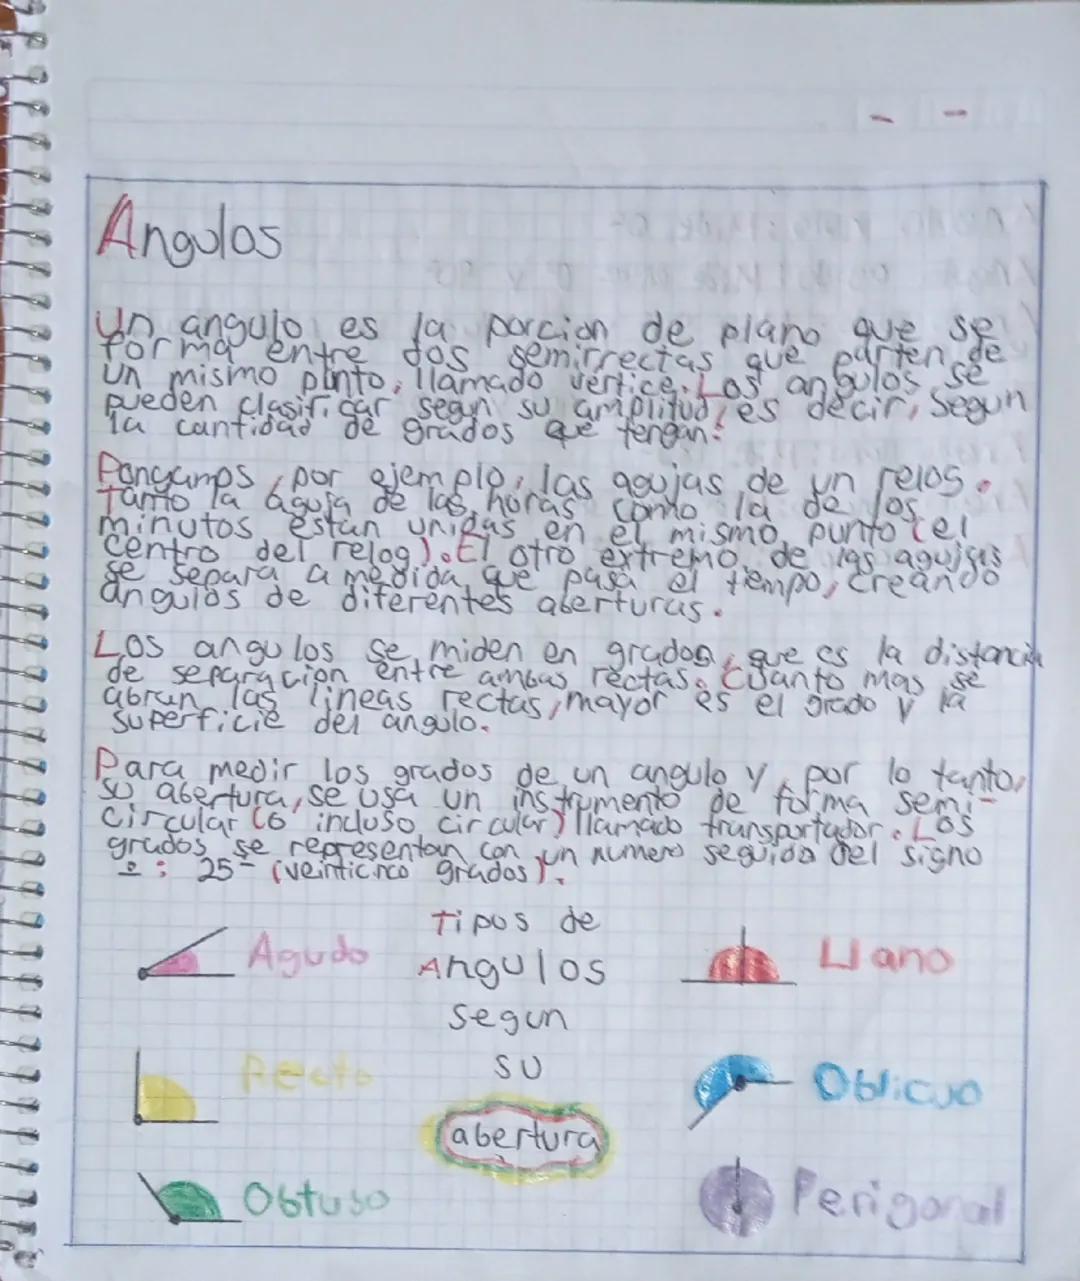 Angulos
Un angulo es la porcion de plano que se
forma entre dos semirrectas que parten de
un mismo punto, llamado vertice. Los angulos se
pueden clasificar segun su amplitud, es decir, segun
la cantidad de grados que tengan:
Pongamos, por ejemplo, las agujas de un relos.
Tanto la aguja de las horas como la de los
minutos estan unidas en el mismo punto (el
centro del relog). El otro extremo de las agujas
se separa a medida que pasa el tiempo, creando
angulos de diferentes aberturas.
Los angulos se miden en grados, que es la distancia
de separacion entre ambas rectas. Cuanto mas se
abran las lineas rectas, mayor es el grado y la
superficie del angulo.
Para medir los grados de un angulo y, por lo tanto,
su abertura, se usa un instrumento de forma semi-
circular (o incluso circular) llamado transportador. Los
grados se representan con un numero seguido del signo
º: 25º (veinticinco grados).
Tipos de
Angulos
segun
su
abertura
Agudo
Recto
Obtuso
Llano
Oblicuo
Perigonal